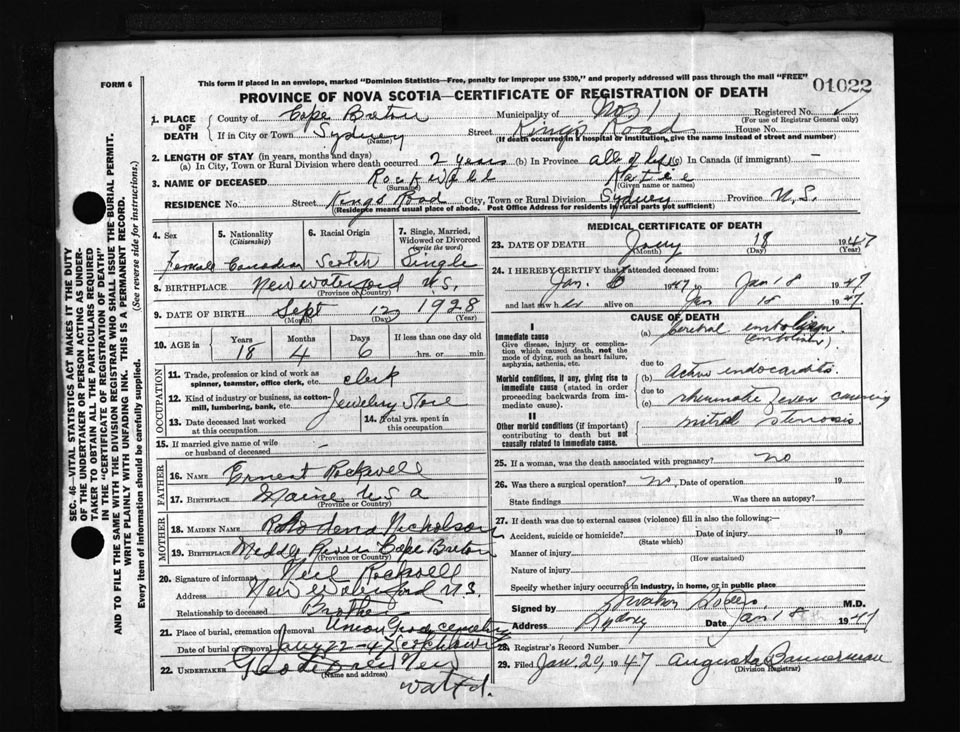 FORM 6
This form if placed in an envelope, marked "Dominion Statistics—Free, penalty for improper use $300," and properly addressed will pass through the mail "FREE"
01022
PROVINCE OF NOVA SCOTIA—CERTIFICATE OF REGISTRATION OF DEATH
1. PLACE OF DEATH
County of Cape Breton Municipality of No 1 Registered No.
(For use of Registrar General only)
If in City or Town Sydney Street Kings Road House No.
(Name) (If death occurred in a hospital or institution, give the name instead of street and number)
2. LENGTH OF STAY (in years, months and days)
(a) In City, Town or Rural Division where death occurred 2 years (b) In Province all of life (c) In Canada (if immigrant) —
3. NAME OF DECEASED Rockwell Katie
(Surname) (Given name or names)
RESIDENCE No. Street Kings Road City, Town or Rural Division Sydney Province N.S.
(Residence means usual place of abode. Post Office Address for residents in rural parts not sufficient)
4. Sex 5. Nationality (Citizenship) 6. Racial Origin 7. Single, Married, Widowed or Divorced (write the word)
Female Canadian Scotch Single
8. BIRTHPLACE New Waterford N.S.
(Province or Country)
9. DATE OF BIRTH Sept 12 1928
(Month) (Day) (Year)
10. AGE in Years Months Days If less than one day old
18 4 6 hrs. or min.
OCCUPATION
11. Trade, profession or kind of work as spinner, teamster, office clerk, etc. clerk
12. Kind of industry or business, as cotton-mill, lumbering, bank, etc. Jewelery Store
13. Date deceased last worked at this occupation
14. Total yrs. spent in this occupation
15. If married give name of wife or husband of deceased —
FATHER
16. NAME Ernest Rockwell
17. BIRTHPLACE Maine U S A
(Province or Country)
MOTHER
18. MAIDEN NAME Nicholson
19. BIRTHPLACE Middle River Cape Breton
(Province or Country)
20. Signature of informant Neil Rockwell
Address New Waterford N.S.
Relationship to deceased Brother
21. Place of burial, cremation or removal Union Grove cemetery
Date of burial or removal Jany 22-47
22. UNDERTAKER New
(Name and address)
Wat'f'd.
MEDICAL CERTIFICATE OF DEATH
23. DATE OF DEATH Jany 18 1947
(Month) (Day)
24. I HEREBY CERTIFY that I attended deceased from:
Jan. 1947 to Jan 18 1947
and last saw her alive on Jan 18 1947
CAUSE OF DEATH
I
Immediate cause
Give disease, injury or complication which caused death, not the mode of dying, such as heart failure, asphyxia, asthenia, etc.
(a) Cerebral embolism
(embolism)
due to
Morbid conditions, if any, giving rise to immediate cause (stated in order proceeding backwards from immediate cause).
(b) active endocarditis.
due to
(c) rheumatic fever causing
mitral stenosis.
II
Other morbid conditions (if important) contributing to death but not causally related to immediate cause.
25. If a woman, was the death associated with pregnancy? no
26. Was there a surgical operation? no. Date of operation 19
State findings Was there an autopsy?
27. If death was due to external causes (violence) fill in also the following:—
Accident, suicide or homicide? Date of injury 19
(State which)
Manner of injury
(How sustained)
Nature of injury
Specify whether injury occurred in industry, in home, or in public place
Signed by M.D.
Address Sydney Date Jan 18 1947
28. Registrar's Record Number
29. Filed Jan. 20, 1947 Augusta Bannerman
(Division Registrar)
SEC. 46—VITAL STATISTICS ACT MAKES IT THE DUTY
OF THE UNDERTAKER OR PERSON ACTING AS UNDERTAKER TO OBTAIN ALL THE PARTICULARS REQUIRED
IN THE "CERTIFICATE OF REGISTRATION OF DEATH"
AND TO FILE THE SAME WITH THE DIVISION REGISTRAR WHO SHALL ISSUE THE BURIAL PERMIT.
WRITE PLAINLY WITH UNFADING INK. THIS IS A PERMANENT RECORD.
Every item of information should be carefully supplied. (See reverse side for instructions.)